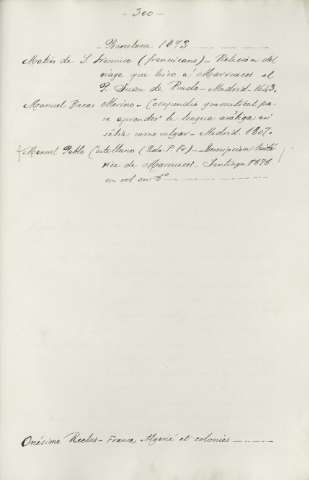 - 300 -
Barcelona 1893
Matías de S. Francisco (franciscano) - Relación del
viage que hizo a Marruecos el
P. Juan de Prado - Madrid - 1643.
Manuel Bacas Merino - Compendio gramatical pa-
ra aprender la lengua arábiga así
sabia como vulgar - Madrid 1807.
Manuel Pablo Castellanos - Descripcion histó-
rica de Marruecos. Santiago 1878
un vol en 8º
Onésime Reclus - France, Algérie et colonies